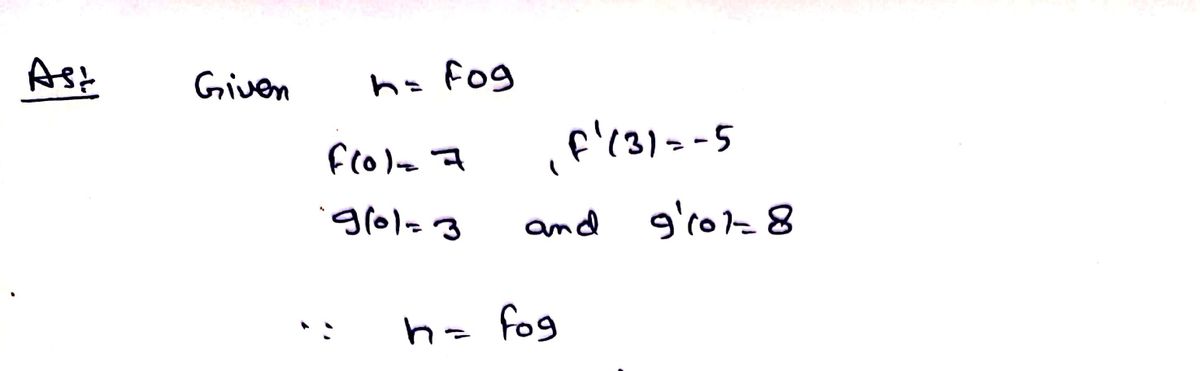 Ans: Given h = fog
f(0) = 7 , f'(3) = -5
g(0) = 3 and g'(0) = 8
∵ h = fog